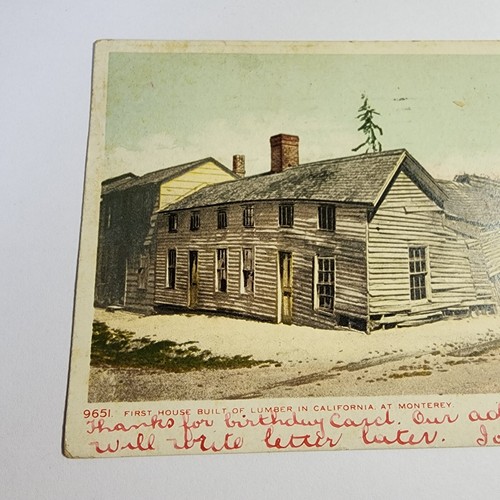 9651. FIRST HOUSE BUILT OF LUMBER IN CALIFORNIA. AT MONTEREY
Thanks for birthday Card. Our ad
will write letter later.